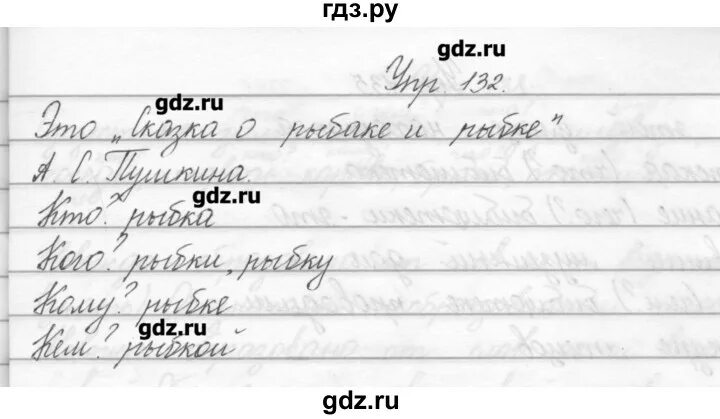 гдз.ру
gdz.ru
Упр 132.
gdz.ru
Это „Сказка о рыбаке и рыбке"
А. С. Пушкина.
gdz.ru
Кто? рыбка
gdz.ru
Кого? рыбки, рыбку
Кому? рыбке
gdz.ru
gdz.ru
Кем? рыбкой
gdz.ru
gdz.ru